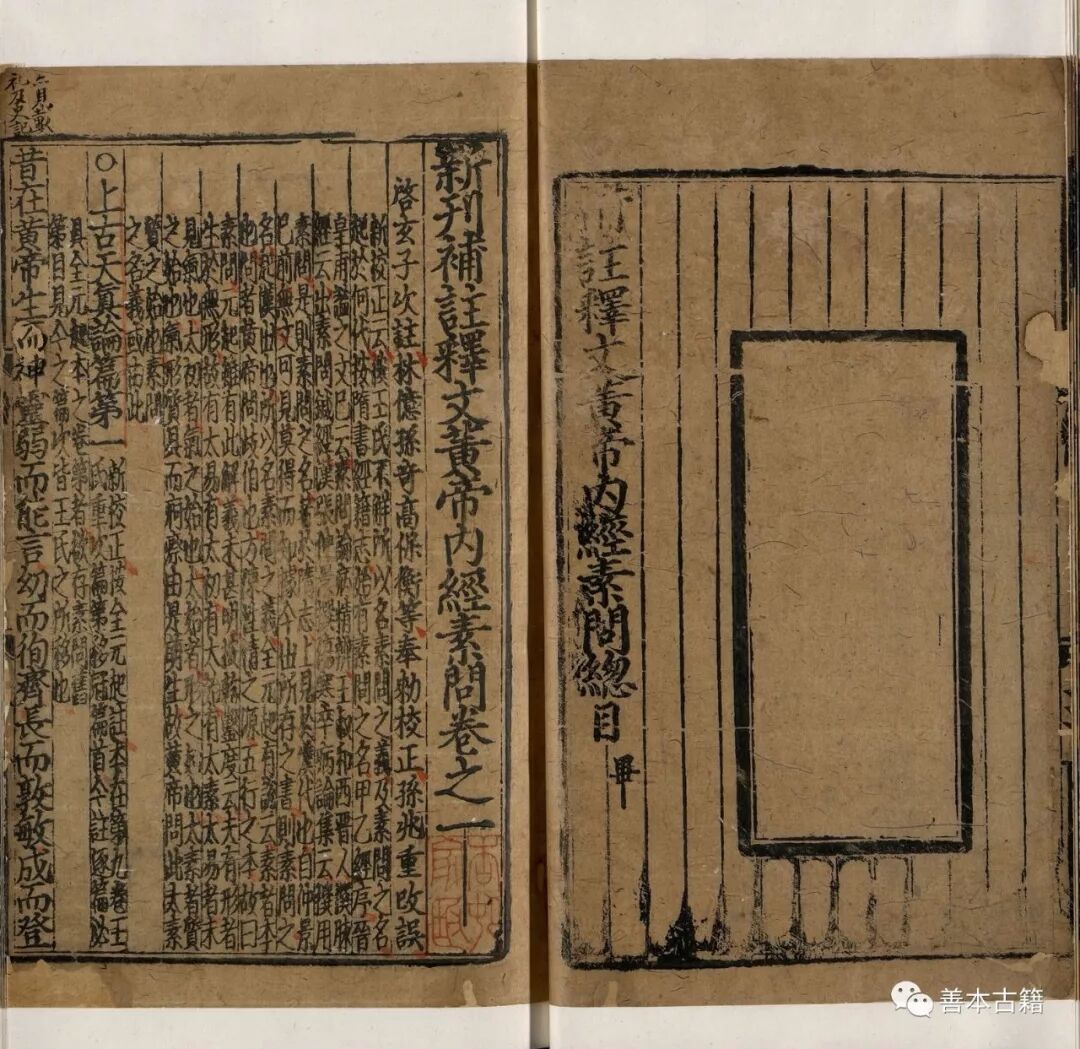 註釋文黃帝內經素問總目
畢
新刊補註釋文黃帝內經素問卷之一
啓玄子次註林億孫奇高保衡等奉勑校正孫兆重改誤
新校正云按王氏不解所以名素問之義及素問之名
起於何代按隋書經籍志始有素問之名甲乙經序晉
皇甫謐之文已云素問論病精辨王叔和西晉人撰脉
經云出素問鍼經漢張仲景撰傷寒卒病論集云撰用
素問是則素問之名著於隋志上見於漢代也自仲景
已前無文可見莫得而知據今世所存之書則素問之
名起漢世也所以名素問之義全元起有說云素者本
也問者黃帝問歧伯也方陳性情之源五行之本故曰
素問元起雖有此解義未甚明按乾鑿度云夫有形者
生於無形故有太易有太初有太始有太素太易者未
見氣也太初者氣之始也太始者形之始也太素者質
之始也氣形質具而痾瘵由是萌生故黃帝問此太素
質之始也素問
之名義或由此
○上古天真論篇第一
新校正按全元起註本在第九卷王
氏重次篇第移冠篇首今註逐篇必
具全元起本之卷第者欲存素問舊
第目見今之篇次皆王氏之所移也
昔在黃帝生而神靈弱而能言幼而侚齊長而敦敏成而登
史記
善本古籍